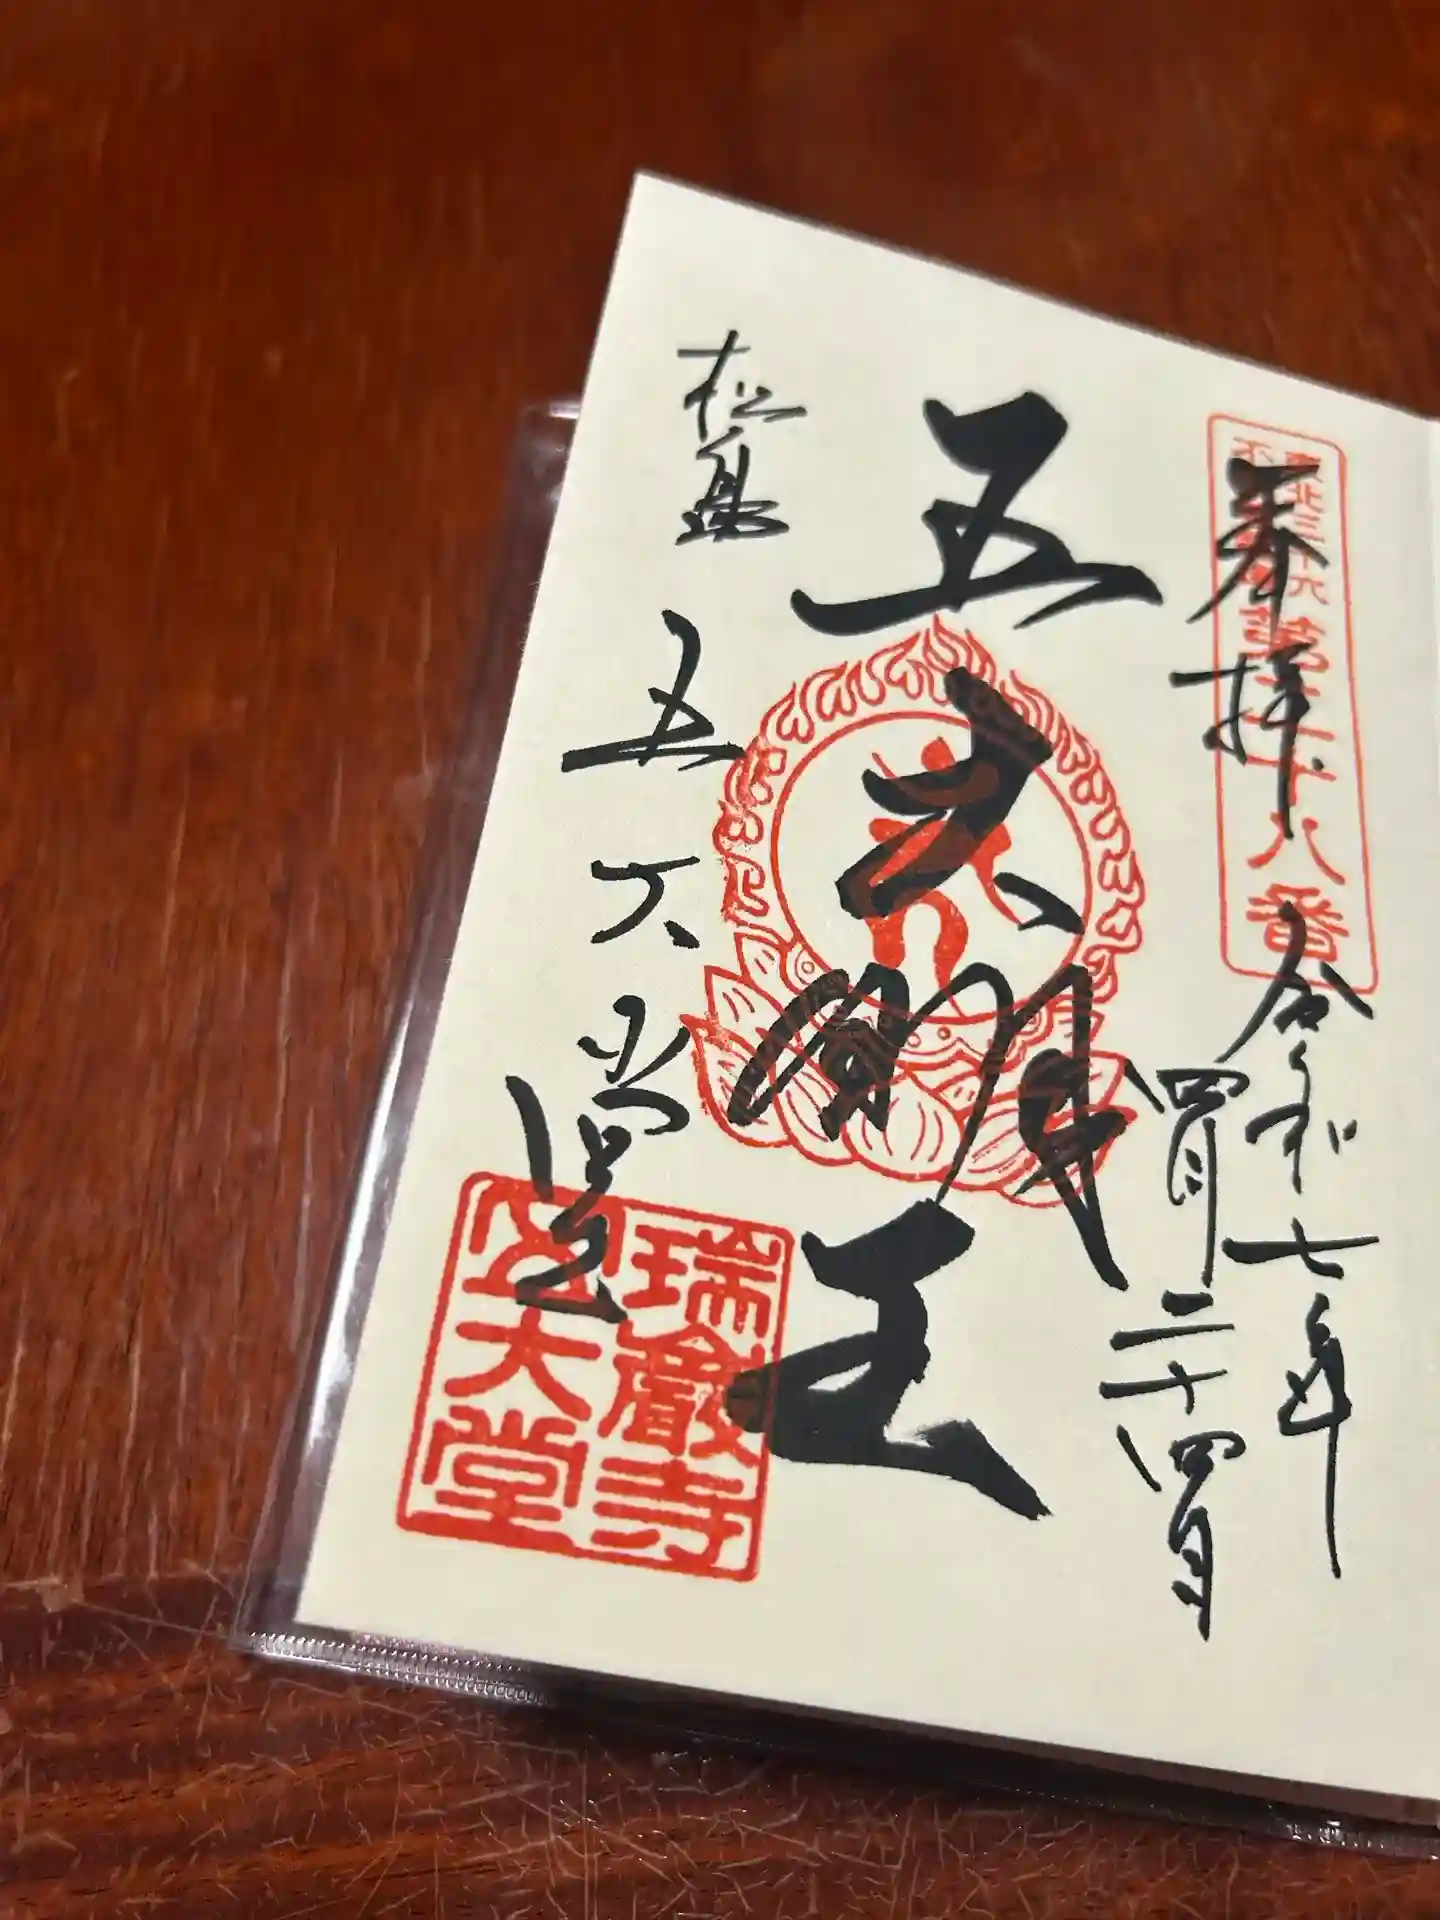 奉拝
東北三十六
第二十八番
令和七年
四月二十四日
五大明王
松島
五大堂
瑞巖寺
五大堂